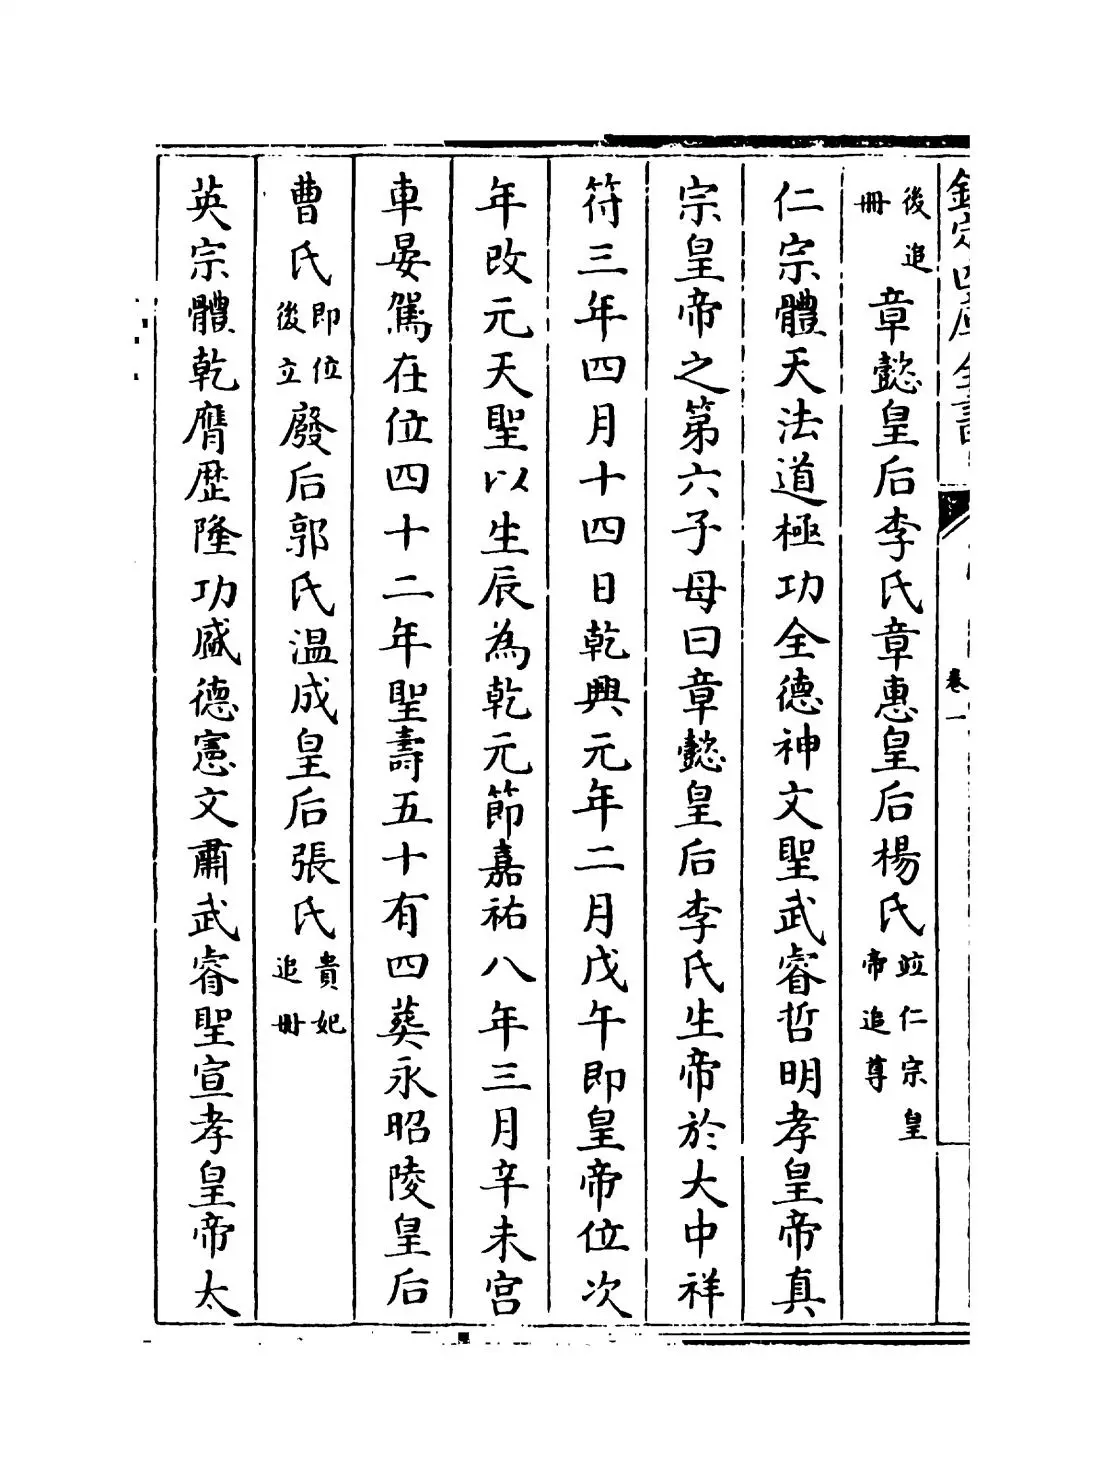 欽定四庫全書
卷一
後追冊章懿皇后李氏章惠皇后楊氏竝仁宗皇帝追尊
仁宗體天法道極功全德神文聖武睿哲明孝皇帝真
宗皇帝之第六子母曰章懿皇后李氏生帝於大中祥
符三年四月十四日乾興元年二月戊午即皇帝位次
年改元天聖以生辰為乾元節嘉祐八年三月辛未宫
車晏駕在位四十二年聖壽五十有四葬永昭陵皇后
曹氏即位後立廢后郭氏温成皇后張氏貴妃追冊
英宗體乾膺歴隆功盛德憲文肅武睿聖宣孝皇帝太